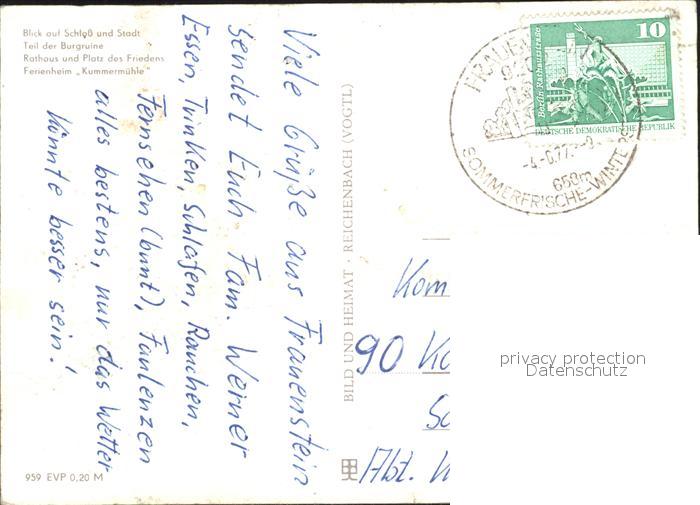 Blick auf Schloß und Stadt
Teil der Burgruine
Rathaus und Platz des Friedens
Ferienheim „Kummermühle"
Viele Grüße aus Frauenstein
sendet Euch Fam. Werner
Essen, Trinken, Schlafen, Rauchen,
Fernsehen (bunt), Faulenzen
alles bestens, nur das Wetter
könnte besser sein!
959 EVP 0,20 M
BILD UND HEIMAT · REICHENBACH (VOGTL)
10
Berlin Rathausstraße
DEUTSCHE DEMOKRATISCHE REPUBLIK
FRAUEN
650m
SOMMERFRISCHE-WINTERS
Kom
90 K
Abt.
privacy protection
Datenschutz